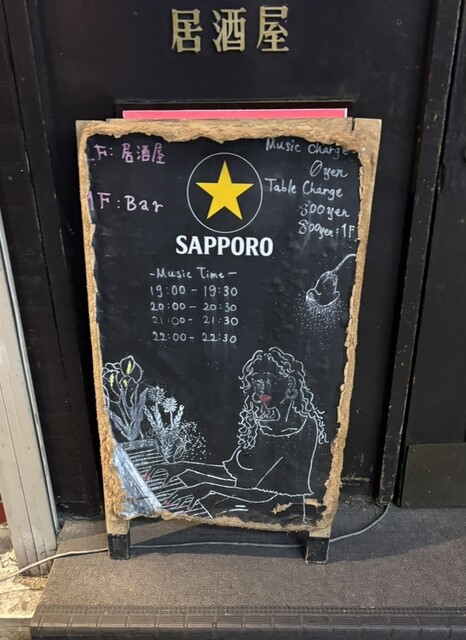 居酒屋
F: 居酒屋
1F: Bar
SAPPORO
Music Charge
0yen
Table Charge
500yen
800yen:1F
-Music Time-
19:00 - 19:30
20:00 - 20:30
21:00 - 21:30
22:00 - 22:30